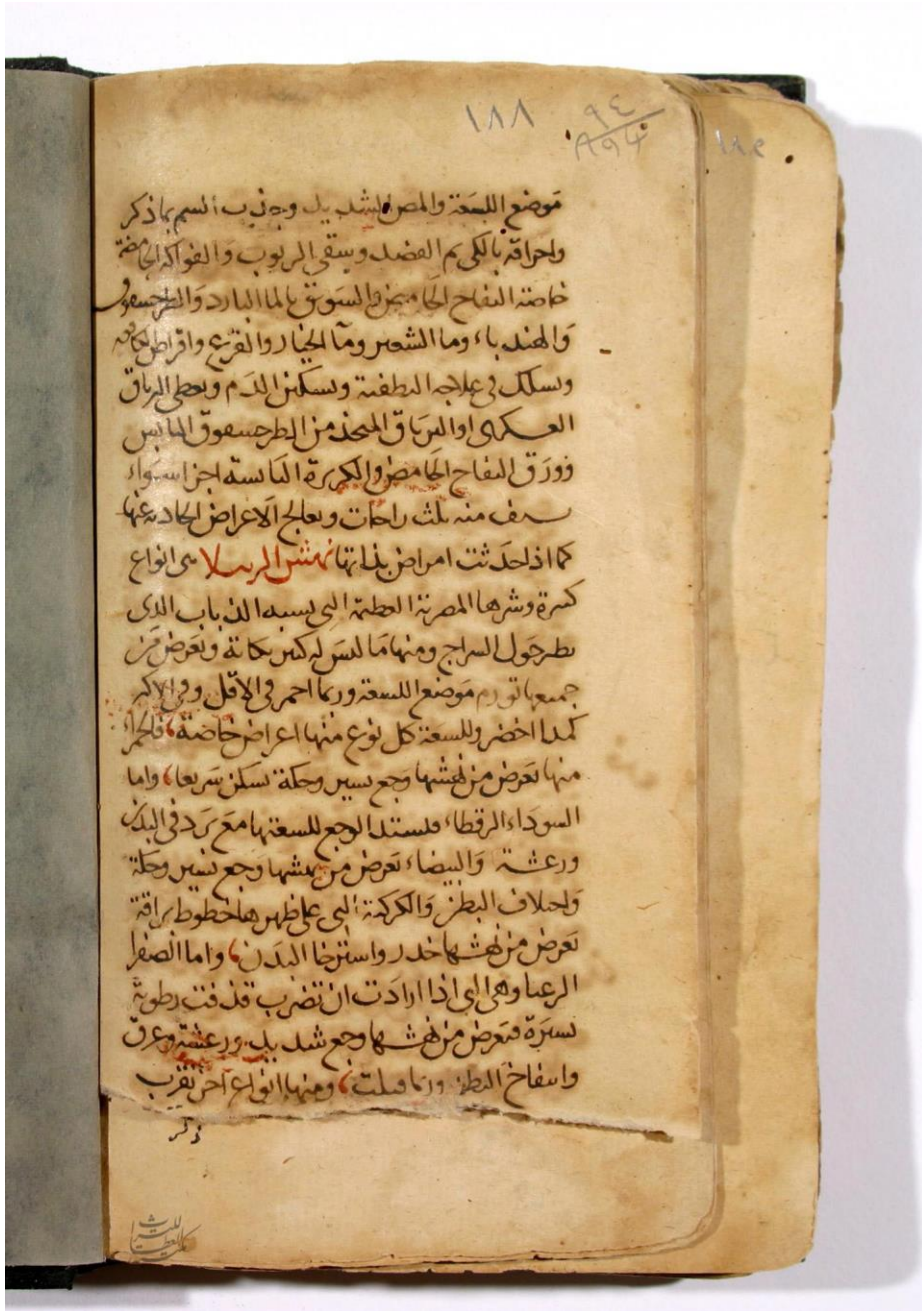 ١٨٨ ٩٤
٨٩٤
موضع اللسعة والمص الشديد وجذب السم بما ذكر
واحراقه بالكي ثم الفصد ويسقى الربوب والفواكه الحامضة
خاصة التفاح الحامض والسويق بالما البارد والطرحشقوق
والهندباء وما الشعير وما الخيار والقرع واقراص الكافور
ويسلك في علاجه التطفية وتسكين الدم ويعطى الترياق
العسكري او الترياق المتخذ من الطرحشقوق اليابس
وورق التفاح الحامض والكزبرة اليابسة اجزا سواء
يسف منه ثلث راحات ويعالج الاعراض الحادثة عنها
كما اذا حدثت امراض بذاتها نهش الرتيلا هي انواع
كثيرة وشرها المصرية العظيمة التي تشبه الذباب الذي
يطير حول السراج ومنها ما ليس له كثير نكاية ويعرض من
جميعها تورم موضع اللسعة وربما احمر في الاقل وفي الاكثر
كمدا اخضر وللسعة كل نوع منها اعراض خاصة فالحمرا
منها تعرض من نهشها وجع يسير وحكة تسكن سريعا واما
السوداء الرقطاء فيشتد الوجع للسعتها مع برد في البدن
ورعشة والبيضاء تعرض من نهشها وجع يسير وحكة
واختلاف البطن والكوكبة التي على ظهرها خطوط براقة
تعرض من نهشها خدر واسترخا البدن واما الصفرا
الزغبا وهي التي اذا ارادت ان تضرب قذفت رطوبة
يسيرة فيعرض من نهشها وجع شديد ورعشة وعرق
وانتفاخ البطن وربما قتلت ومنها انواع اخر تقرب